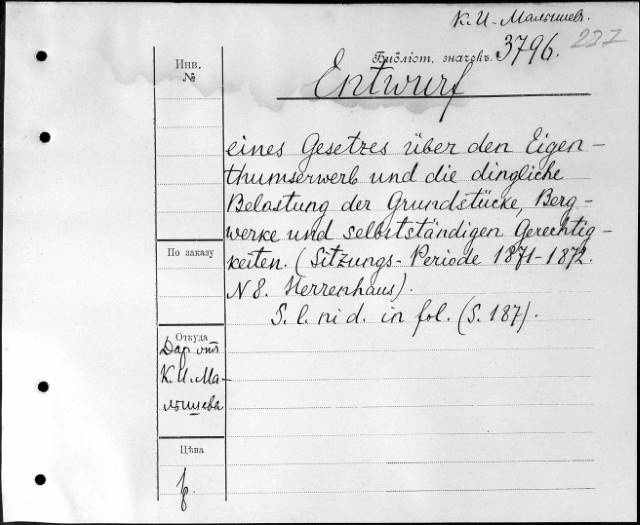 К. И. Малышевъ.
Инв. №
Библіот. значекъ. 3796. 227
Entwurf
eines Gesetzes über den Eigen-
thumserwerb und die dingliche
Belastung der Grundstücke, Berg-
werke und selbstständigen Gerechtig-
keiten. (Sitzungs-Periode 1871-1872.
N 8. Herrenhaus).
S. l. ni d. in fol. (S. 187).
По заказу
Откуда
Дар отъ
К. И. Ма-
лышева
Цѣна